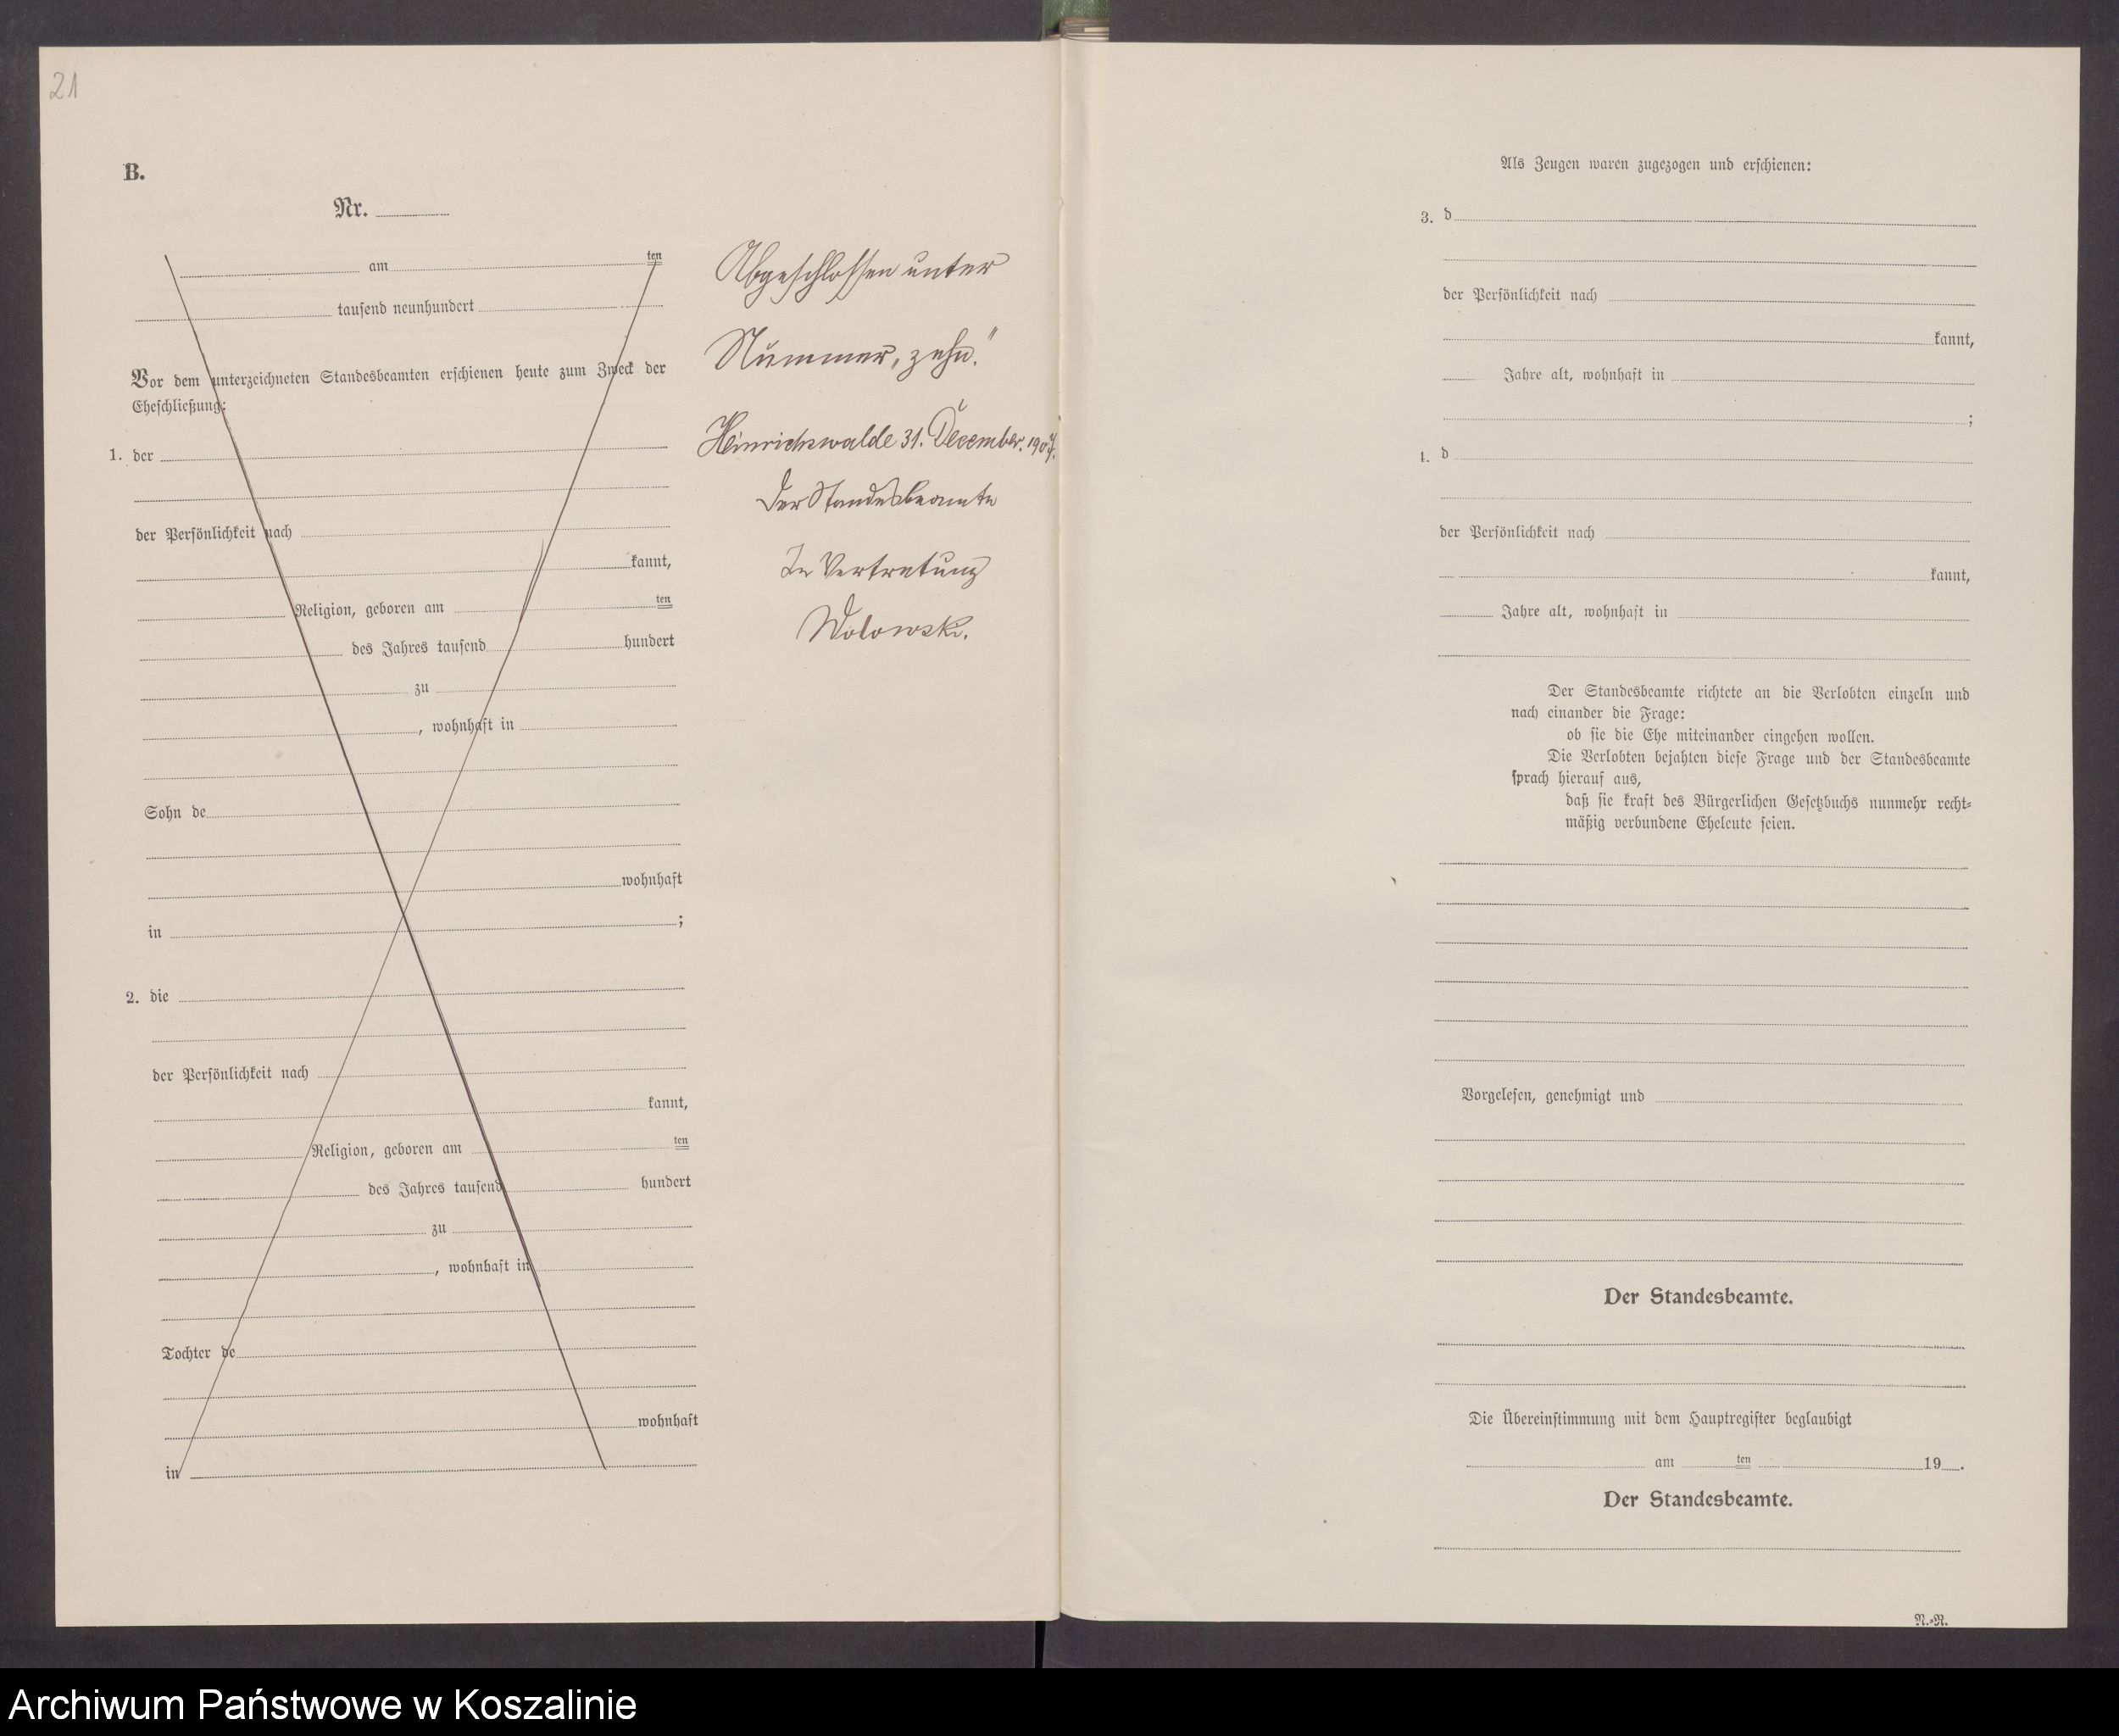 21
B.
Nr.
am ten
tausend neunhundert
Vor dem unterzeichneten Standesbeamten erschienen heute zum Zweck der
Eheschließung:
1. der
der Persönlichkeit nach
kannt,
Religion, geboren am ten
des Jahres tausend hundert
zu
, wohnhaft in
Sohn de
wohnhaft
in ;
2. die
der Persönlichkeit nach
kannt,
Religion, geboren am ten
des Jahres tausend hundert
zu
, wohnhaft in
Tochter de
wohnhaft
in
Abgeschlossen unter
Nummer „zehn."
Heinrichswalde 31. December. 1907.
Der Standesbeamte
In Vertretung
Wolowski.
Als Zeugen waren zugezogen und erschienen:
3. d
der Persönlichkeit nach
kannt,
Jahre alt, wohnhaft in
;
4. d
der Persönlichkeit nach
kannt,
Jahre alt, wohnhaft in
Der Standesbeamte richtete an die Verlobten einzeln und
nach einander die Frage:
ob sie die Ehe miteinander eingehen wollen.
Die Verlobten bejahten diese Frage und der Standesbeamte
sprach hierauf aus,
daß sie kraft des Bürgerlichen Gesetzbuchs nunmehr recht-
mäßig verbundene Eheleute seien.
Vorgelesen, genehmigt und
Der Standesbeamte.
Die Übereinstimmung mit dem Hauptregister beglaubigt
am ten 19 .
Der Standesbeamte.
N.-R.
Archiwum Państwowe w Koszalinie